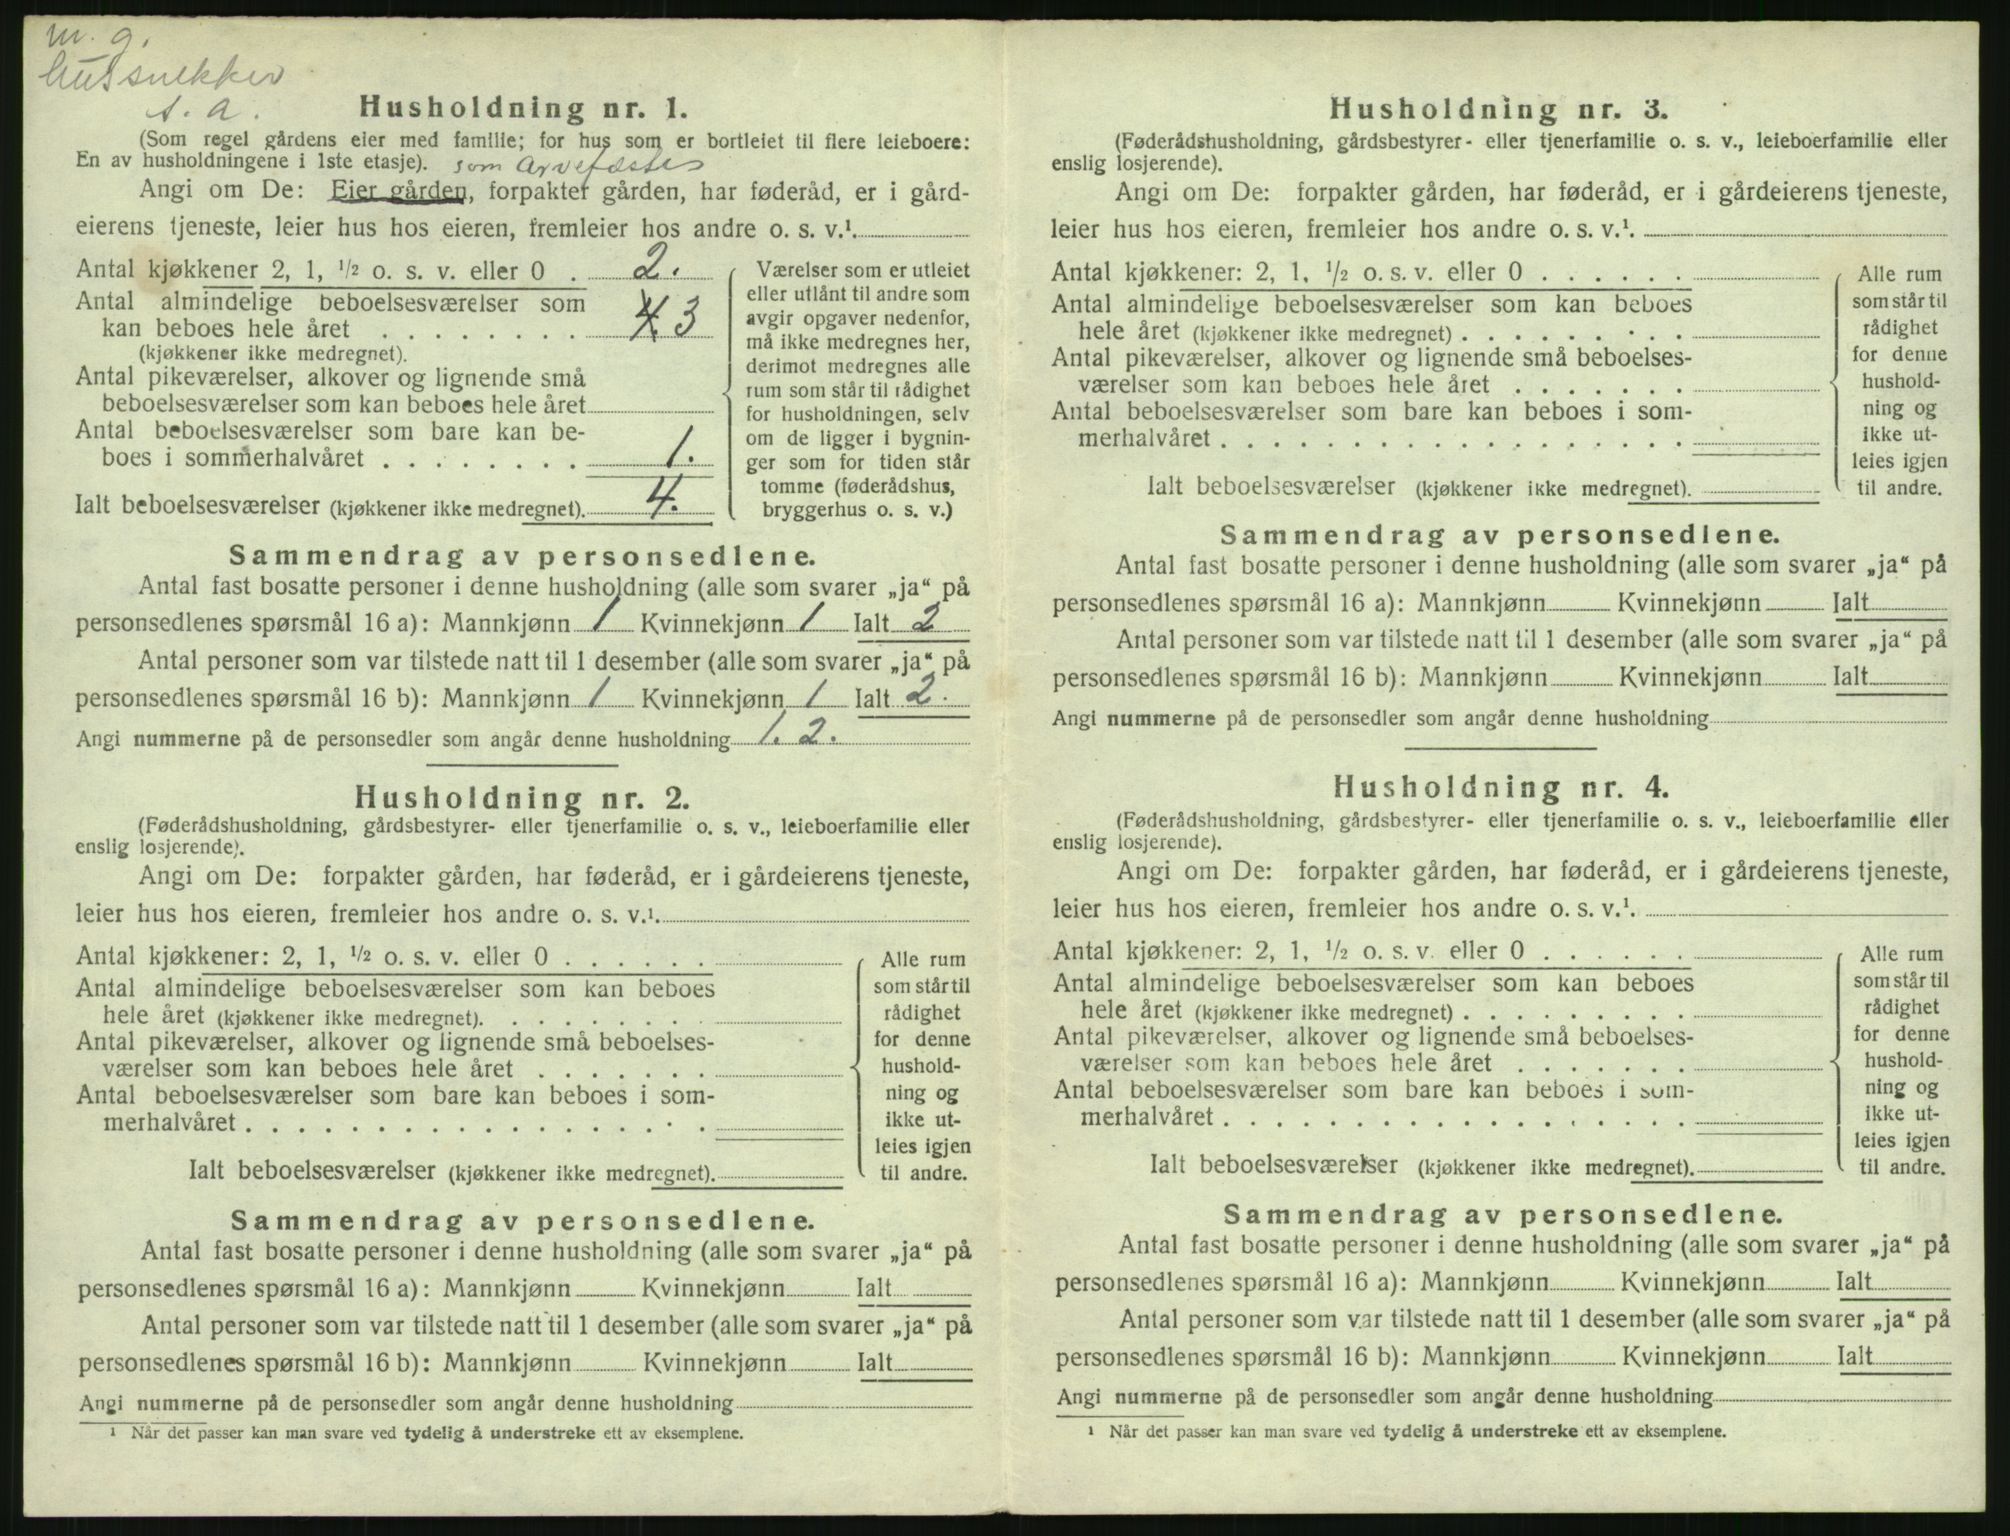 m. g.
hussnekker
s. a.
Husholdning nr. 1.
(Som regel gårdens eier med familie; for hus som er bortleiet til flere leieboere:
En av husholdningene i 1ste etasje). som Arvefæste
Angi om De: Eier gården, forpakter gården, har føderåd, er i gård-
eierens tjeneste, leier hus hos eieren, fremleier hos andre o. s. v.¹.
Antal kjøkkener 2, 1, ½ o. s. v. eller 0 . 2.
Antal almindelige beboelsesværelser som
kan beboes hele året . . . . . . . . 4. 3
(kjøkkener ikke medregnet).
Antal pikeværelser, alkover og lignende små
beboelsesværelser som kan beboes hele året
Antal beboelsesværelser som bare kan be-
boes i sommerhalvåret . . . . . . . . 1.
Ialt beboelsesværelser (kjøkkener ikke medregnet). 4.
Værelser som er utleiet
eller utlånt til andre som
avgir opgaver nedenfor,
må ikke medregnes her,
derimot medregnes alle
rum som står til rådighet
for husholdningen, selv
om de ligger i bygnin-
ger som for tiden står
tomme (føderådshus,
bryggerhus o. s. v.)
Sammendrag av personsedlene.
Antal fast bosatte personer i denne husholdning (alle som svarer „ja“ på
personsedlenes spørsmål 16 a): Mannkjønn 1 Kvinnekjønn 1 Ialt 2
Antal personer som var tilstede natt til 1 desember (alle som svarer „ja“ på
personsedlenes spørsmål 16 b): Mannkjønn 1 Kvinnekjønn 1 Ialt 2.
Angi nummerne på de personsedler som angår denne husholdning 1. 2.
Husholdning nr. 2.
(Føderådshusholdning, gårdsbestyrer- eller tjenerfamilie o. s. v., leieboerfamilie eller
enslig losjerende).
Angi om De: forpakter gården, har føderåd, er i gårdeierens tjeneste,
leier hus hos eieren, fremleier hos andre o. s. v.¹.
Antal kjøkkener: 2, 1, ½ o. s. v. eller 0 . . . . . .
Antal almindelige beboelsesværelser som kan beboes
hele året (kjøkkener ikke medregnet). . . . . . . . .
Antal pikeværelser, alkover og lignende små beboelses-
værelser som kan beboes hele året . . . . . . .
Antal beboelsesværelser som bare kan beboes i som-
merhalvåret . . . . . . . . . . . . . . . . . .
Ialt beboelsesværelser (kjøkkener ikke medregnet).
Alle rum
som står til
rådighet
for denne
hushold-
ning og
ikke ut-
leies igjen
til andre.
Sammendrag av personsedlene.
Antal fast bosatte personer i denne husholdning (alle som svarer „ja“ på
personsedlenes spørsmål 16 a): Mannkjønn Kvinnekjønn Ialt
Antal personer som var tilstede natt til 1 desember (alle som svarer „ja“ på
personsedlenes spørsmål 16 b): Mannkjønn Kvinnekjønn Ialt
Angi nummerne på de personsedler som angår denne husholdning
¹ Når det passer kan man svare ved tydelig å understreke ett av eksemplene.
Husholdning nr. 3.
(Føderådshusholdning, gårdsbestyrer- eller tjenerfamilie o. s. v., leieboerfamilie eller
enslig losjerende).
Angi om De: forpakter gården, har føderåd, er i gårdeierens tjeneste,
leier hus hos eieren, fremleier hos andre o. s. v.¹.
Antal kjøkkener: 2, 1, ½ o. s. v. eller 0 . . . . . .
Antal almindelige beboelsesværelser som kan beboes
hele året (kjøkkener ikke medregnet) . . . . . . . . .
Antal pikeværelser, alkover og lignende små beboelses-
værelser som kan beboes hele året . . . . . . .
Antal beboelsesværelser som bare kan beboes i som-
merhalvåret . . . . . . . . . . . . . . . . . .
Ialt beboelsesværelser (kjøkkener ikke medregnet).
Alle rum
som står til
rådighet
for denne
hushold-
ning og
ikke ut-
leies igjen
til andre.
Sammendrag av personsedlene.
Antal fast bosatte personer i denne husholdning (alle som svarer „ja“ på
personsedlenes spørsmål 16 a): Mannkjønn Kvinnekjønn Ialt
Antal personer som var tilstede natt til 1 desember (alle som svarer „ja“ på
personsedlenes spørsmål 16 b): Mannkjønn Kvinnekjønn Ialt
Angi nummerne på de personsedler som angår denne husholdning
Husholdning nr. 4.
(Føderådshusholdning, gårdsbestyrer- eller tjenerfamilie o. s. v., leieboerfamilie eller
enslig losjerende).
Angi om De: forpakter gården, har føderåd, er i gårdeierens tjeneste,
leier hus hos eieren, fremleier hos andre o. s. v.¹.
Antal kjøkkener: 2, 1, ½ o. s. v. eller 0 . . . . . .
Antal almindelige beboelsesværelser som kan beboes
hele året (kjøkkener ikke medregnet) . . . . . . . . .
Antal pikeværelser, alkover og lignende små beboelses-
værelser som kan beboes hele året . . . . . . .
Antal beboelsesværelser som bare kan beboes i som-
merhalvåret . . . . . . . . . . . . . . . . . .
Ialt beboelsesværelser (kjøkkener ikke medregnet).
Alle rum
som står til
rådighet
for denne
hushold-
ning og
ikke ut-
leies igjen
til andre.
Sammendrag av personsedlene.
Antal fast bosatte personer i denne husholdning (alle som svarer „ja“ på
personsedlenes spørsmål 16 a): Mannkjønn Kvinnekjønn Ialt
Antal personer som var tilstede natt til 1 desember (alle som svarer „ja“ på
personsedlenes spørsmål 16 b): Mannkjønn Kvinnekjønn Ialt
Angi nummerne på de personsedler som angår denne husholdning
¹ Når det passer kan man svare ved tydelig å understreke ett av eksemplene.